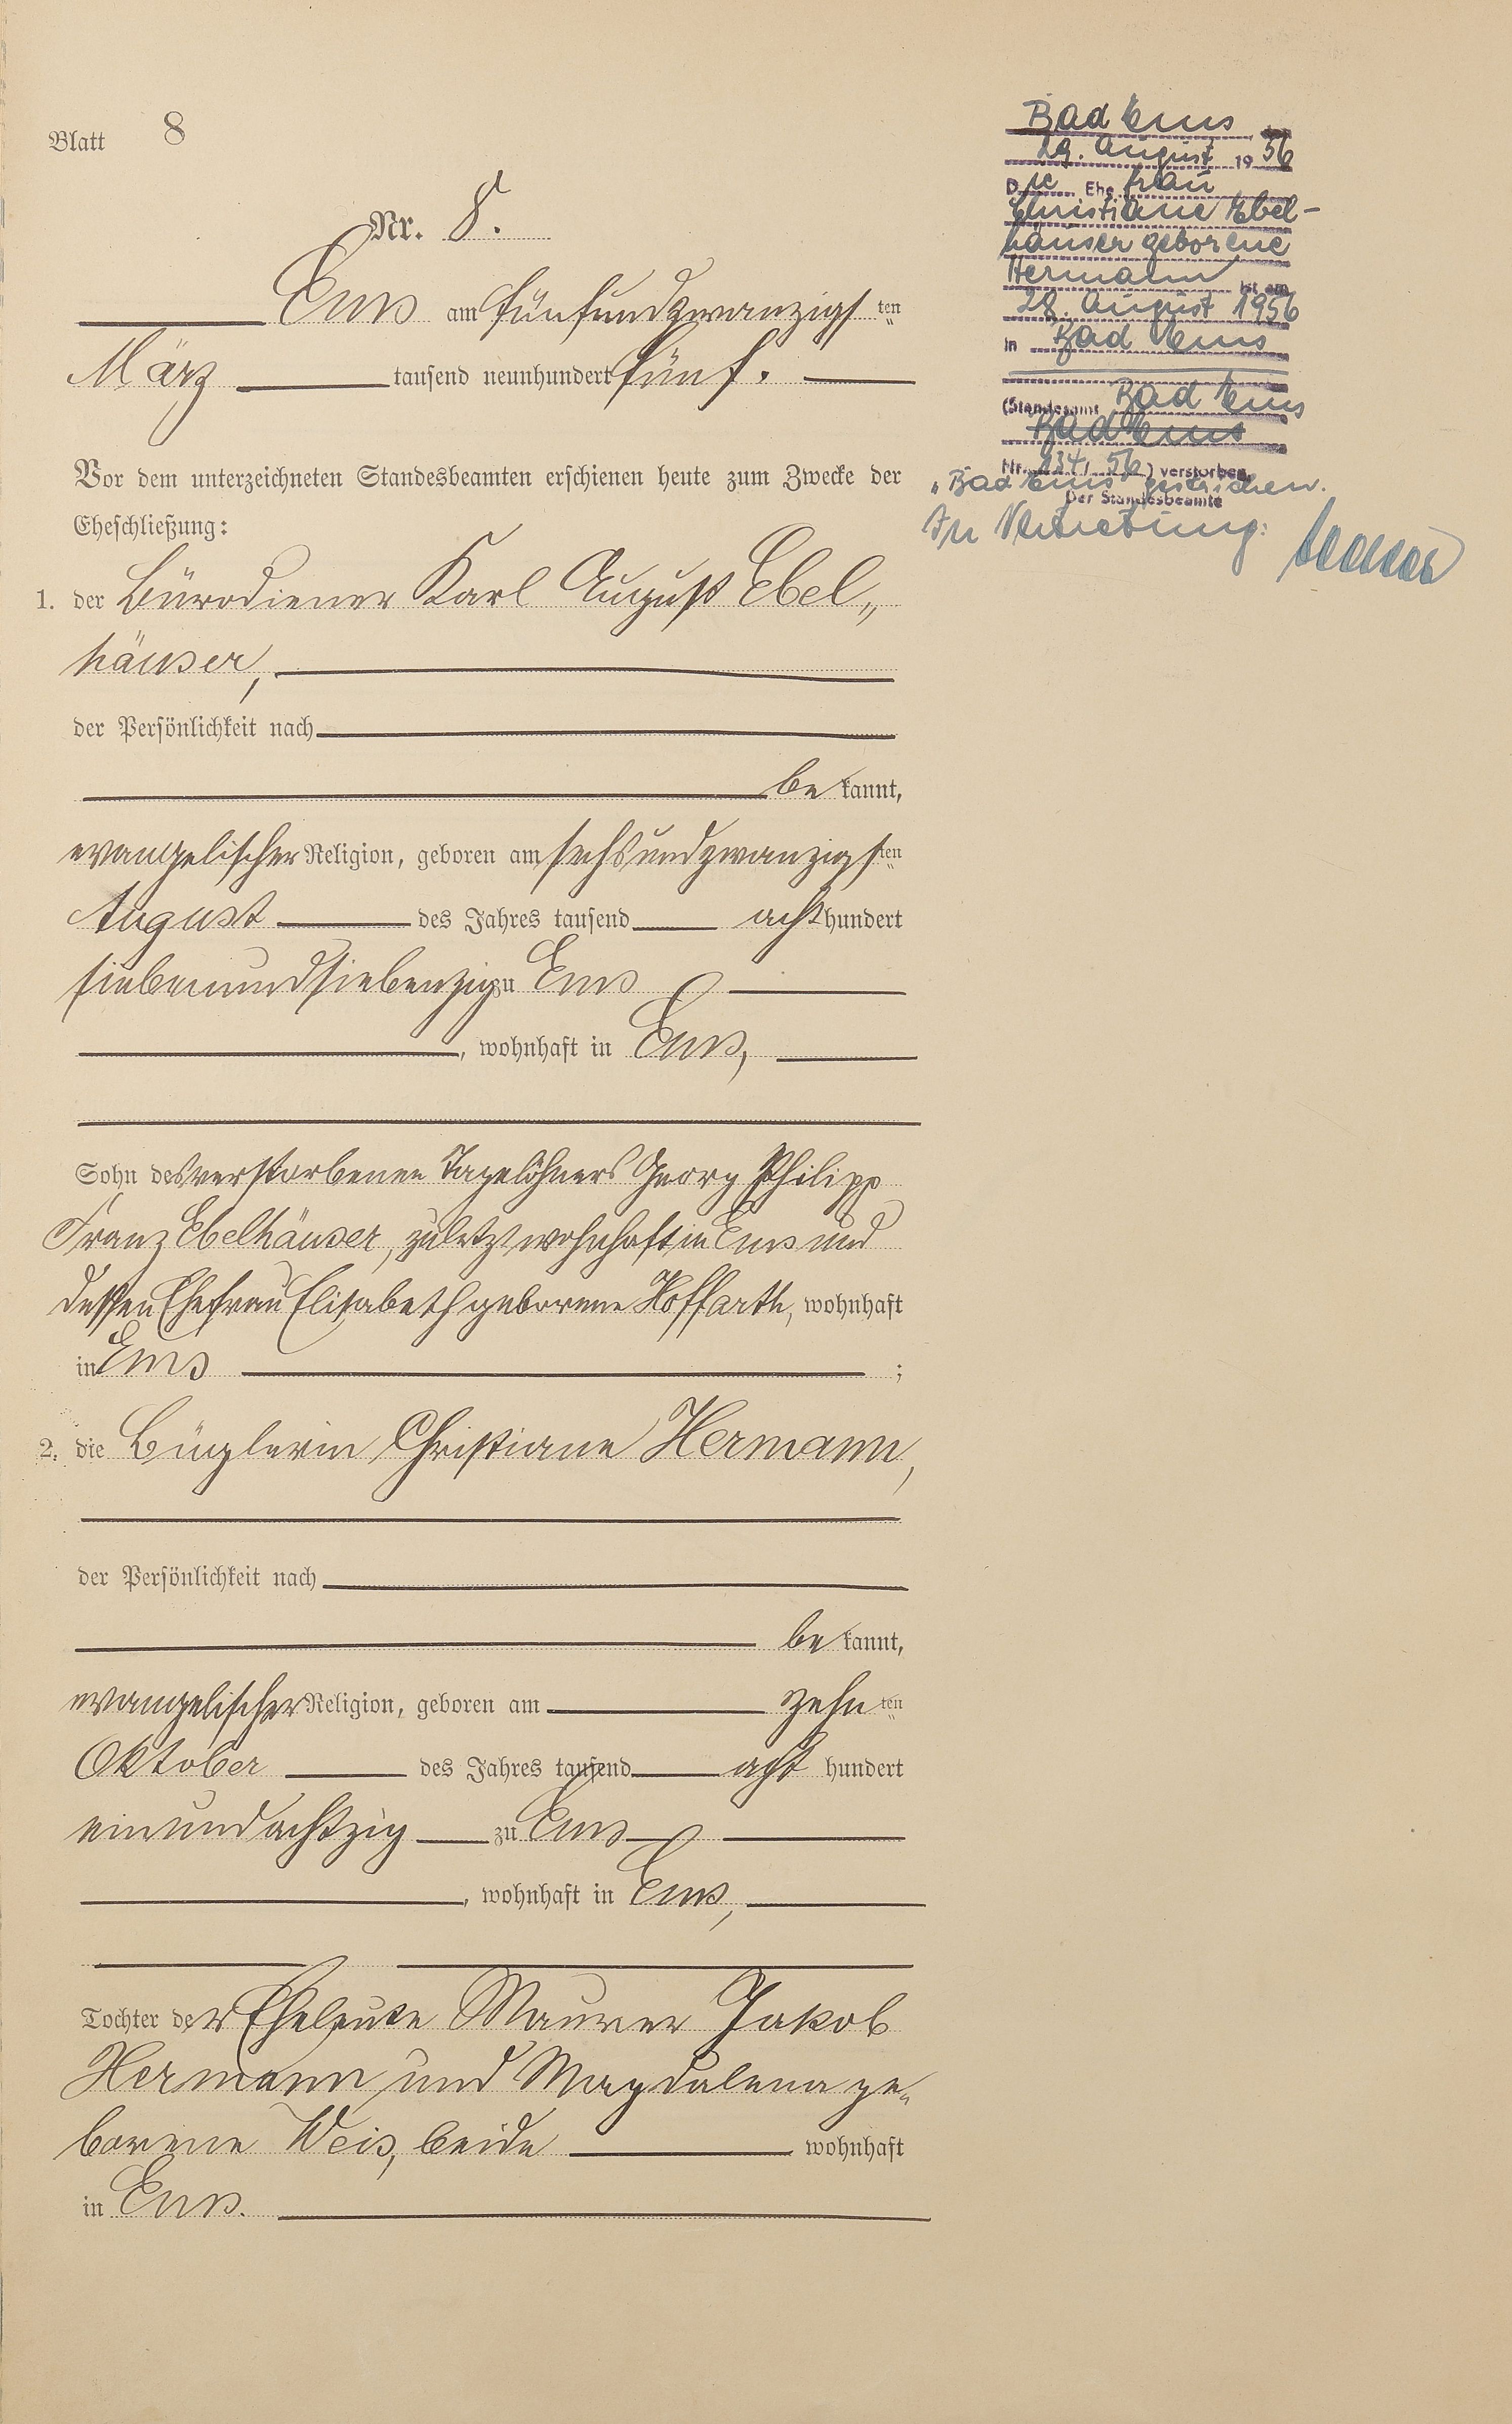 Blatt 8
Nr. 8.
Ems am fünfundzwanzigsten
März tausend neunhundert fünf.
Vor dem unterzeichneten Standesbeamten erschienen heute zum Zwecke der
Eheschließung:
1. der Bürodiener Karl August Ebel„
häuser,
der Persönlichkeit nach
be kannt,
evangelischer Religion, geboren am sechsundzwanzigsten
August des Jahres tausend acht hundert
siebenundsiebenzig zu Ems
, wohnhaft in Ems,
Sohn des verstorbenen Tagelöhners Georg Philipp
Franz Ebelhäuser, zuletzt wohnhaft in Ems und
dessen Ehefrau Elisabeth geborene Hoffarth, wohnhaft
in Ems ;
2. die Büglerin Christiane Hermann,
der Persönlichkeit nach
be kannt,
evangelischer Religion, geboren am zehnten
Oktober des Jahres tausend acht hundert
einundachtzig zu Ems
, wohnhaft in Ems,
Tochter der Eheleute Maurer Jakob
Hermann und Magdalena ge„
borene Weis, beide wohnhaft
in Ems.
Bad Ems, den
29. August 1956
Die Ehefrau
Christiane Ebel-
häuser geborene
Hermann ist am
28. August 1956
in Bad Ems
(Standesamt Bad Ems
Bad Ems
Nr. 134/56) verstorben.
„Bad Ems" gestrichen.
Der Standesbeamte
In Vertretung: